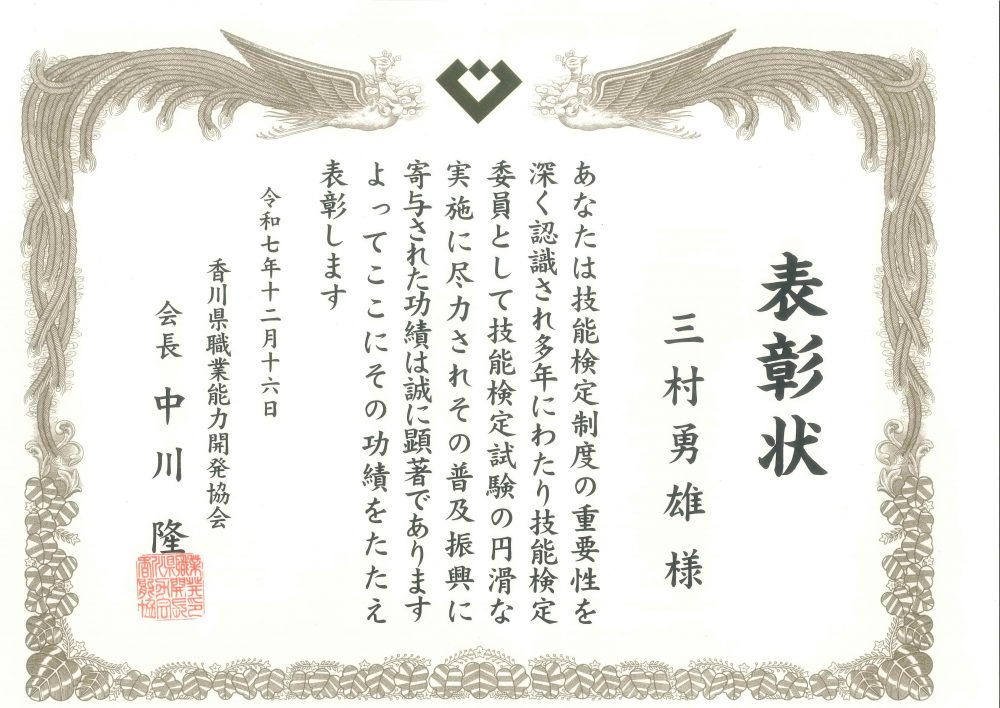 表彰状
三村勇雄様
あなたは技能検定制度の重要性を
深く認識され多年にわたり技能検定
委員として技能検定試験の円滑な
実施に尽力されその普及振興に
寄与された功績は誠に顕著であります
よってここにその功績をたたえ
表彰します
令和七年十二月十六日
香川県職業能力開発協会
会長 中川 隆